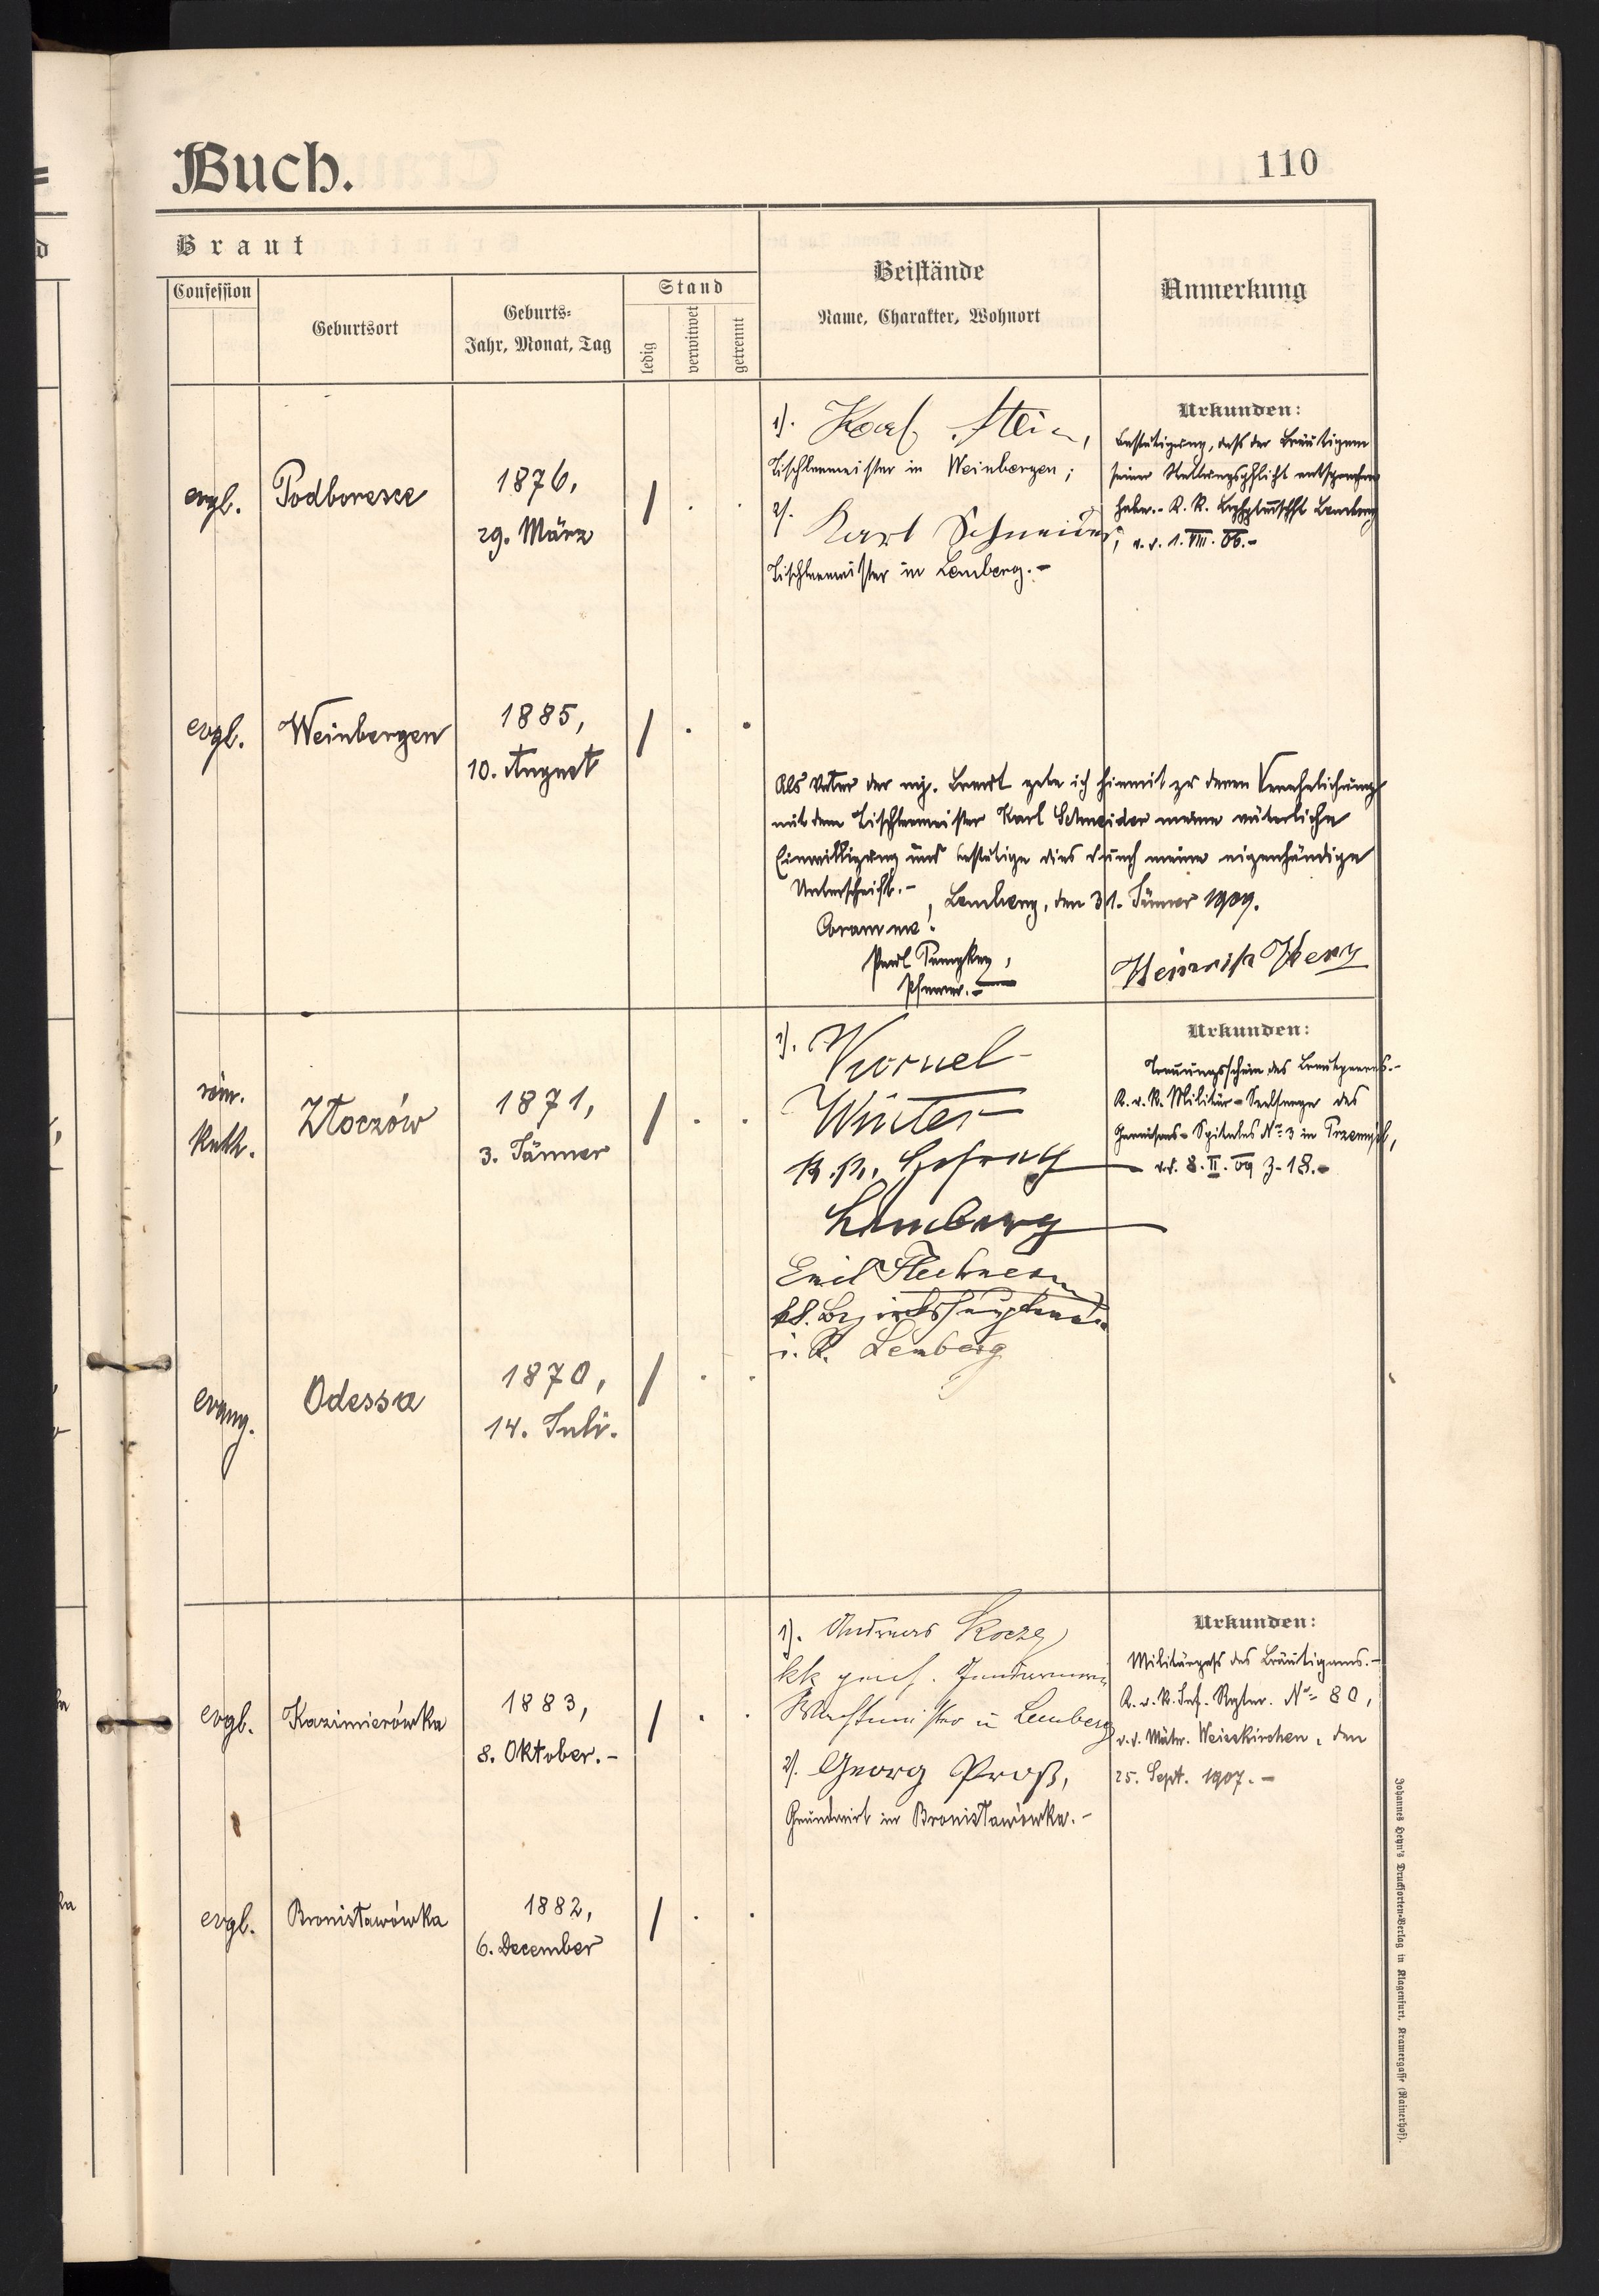 Buch.
110
Braut
Beistände
Name, Charakter, Wohnort
Anmerkung
Confession
Geburtsort
Geburts-
Jahr, Monat, Tag
Stand
ledig
verwitwet
getrennt
evgl.
Podboresce
1876,
29. März
1).
Karl Stein,
Tischlermeister in Weinbergen;
2).
Karl Schneider,
Tischlermeister in Lemberg.-
Urkunden:
Bestätigung, daß der Bräutigam
seiner Stellungspflicht entsprochen
habe.- K. K. Lemberg
v. 1. VIII. 06.-
evgl.
Weinbergen
1885,
10. August
Als Vater der mj. Braut gebe ich hiemit zu deren Verehelichung
mit dem Tischlermeister Karl Schneider meine väterliche
Einwilligung und bestätige dies durch meine eigenhändige
Unterschrift.- Lemberg, den 31. Jänner 1909.
Coram me!
Pfarrer.-
Heinrich
röm.
kath.
Złoczów
1871,
3. Jänner
1). Kornel
Winter
k. k. Hofrath
Lemberg
Emil
kk. Bezirkshauptmann
i. R. Lemberg
Urkunden:
Trauungsschein des Bräutigams.-
K. u. K. Militär-Seelsorge des
Garnisons-Spitales No 3 in Przemyśl,
v. 8. II. 09 Z. 18.-
evang.
Odessa
1870,
14. Juli.
evgl.
Kazimierówka
1883,
8. Oktober.-
1). Andreas
kk Gendarmerie
Wachtmeister in Lemberg
2). Georg Proß,
Grundwirt in Bronisławówka.-
Urkunden:
Militärpaß des Bräutigams.-
K. u. K. Inf. Regtm. No 80,
Mähr. Weisskirchen, den
25. Sept. 1907.-
evgl.
Bronisławówka
1882,
6. December
Johannes Heyn's Drucksorten-Verlag in Klagenfurt, Kramergasse (Rainerhof).